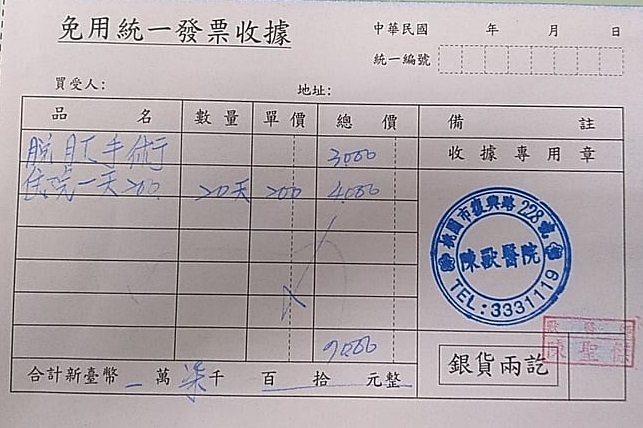 免用統一發票收據
中華民國 年 月 日
統一編號
買受人: 地址:
品名 數量 單價 總價 備註
脫肛手術 3000 收據專用章
住院一天200 20天 200 4000
桃園市復興路228號
陳獸醫院
TEL:3331119
7000
陳聖
合計新臺幣 萬柒千 百 拾 元整 銀貨兩訖